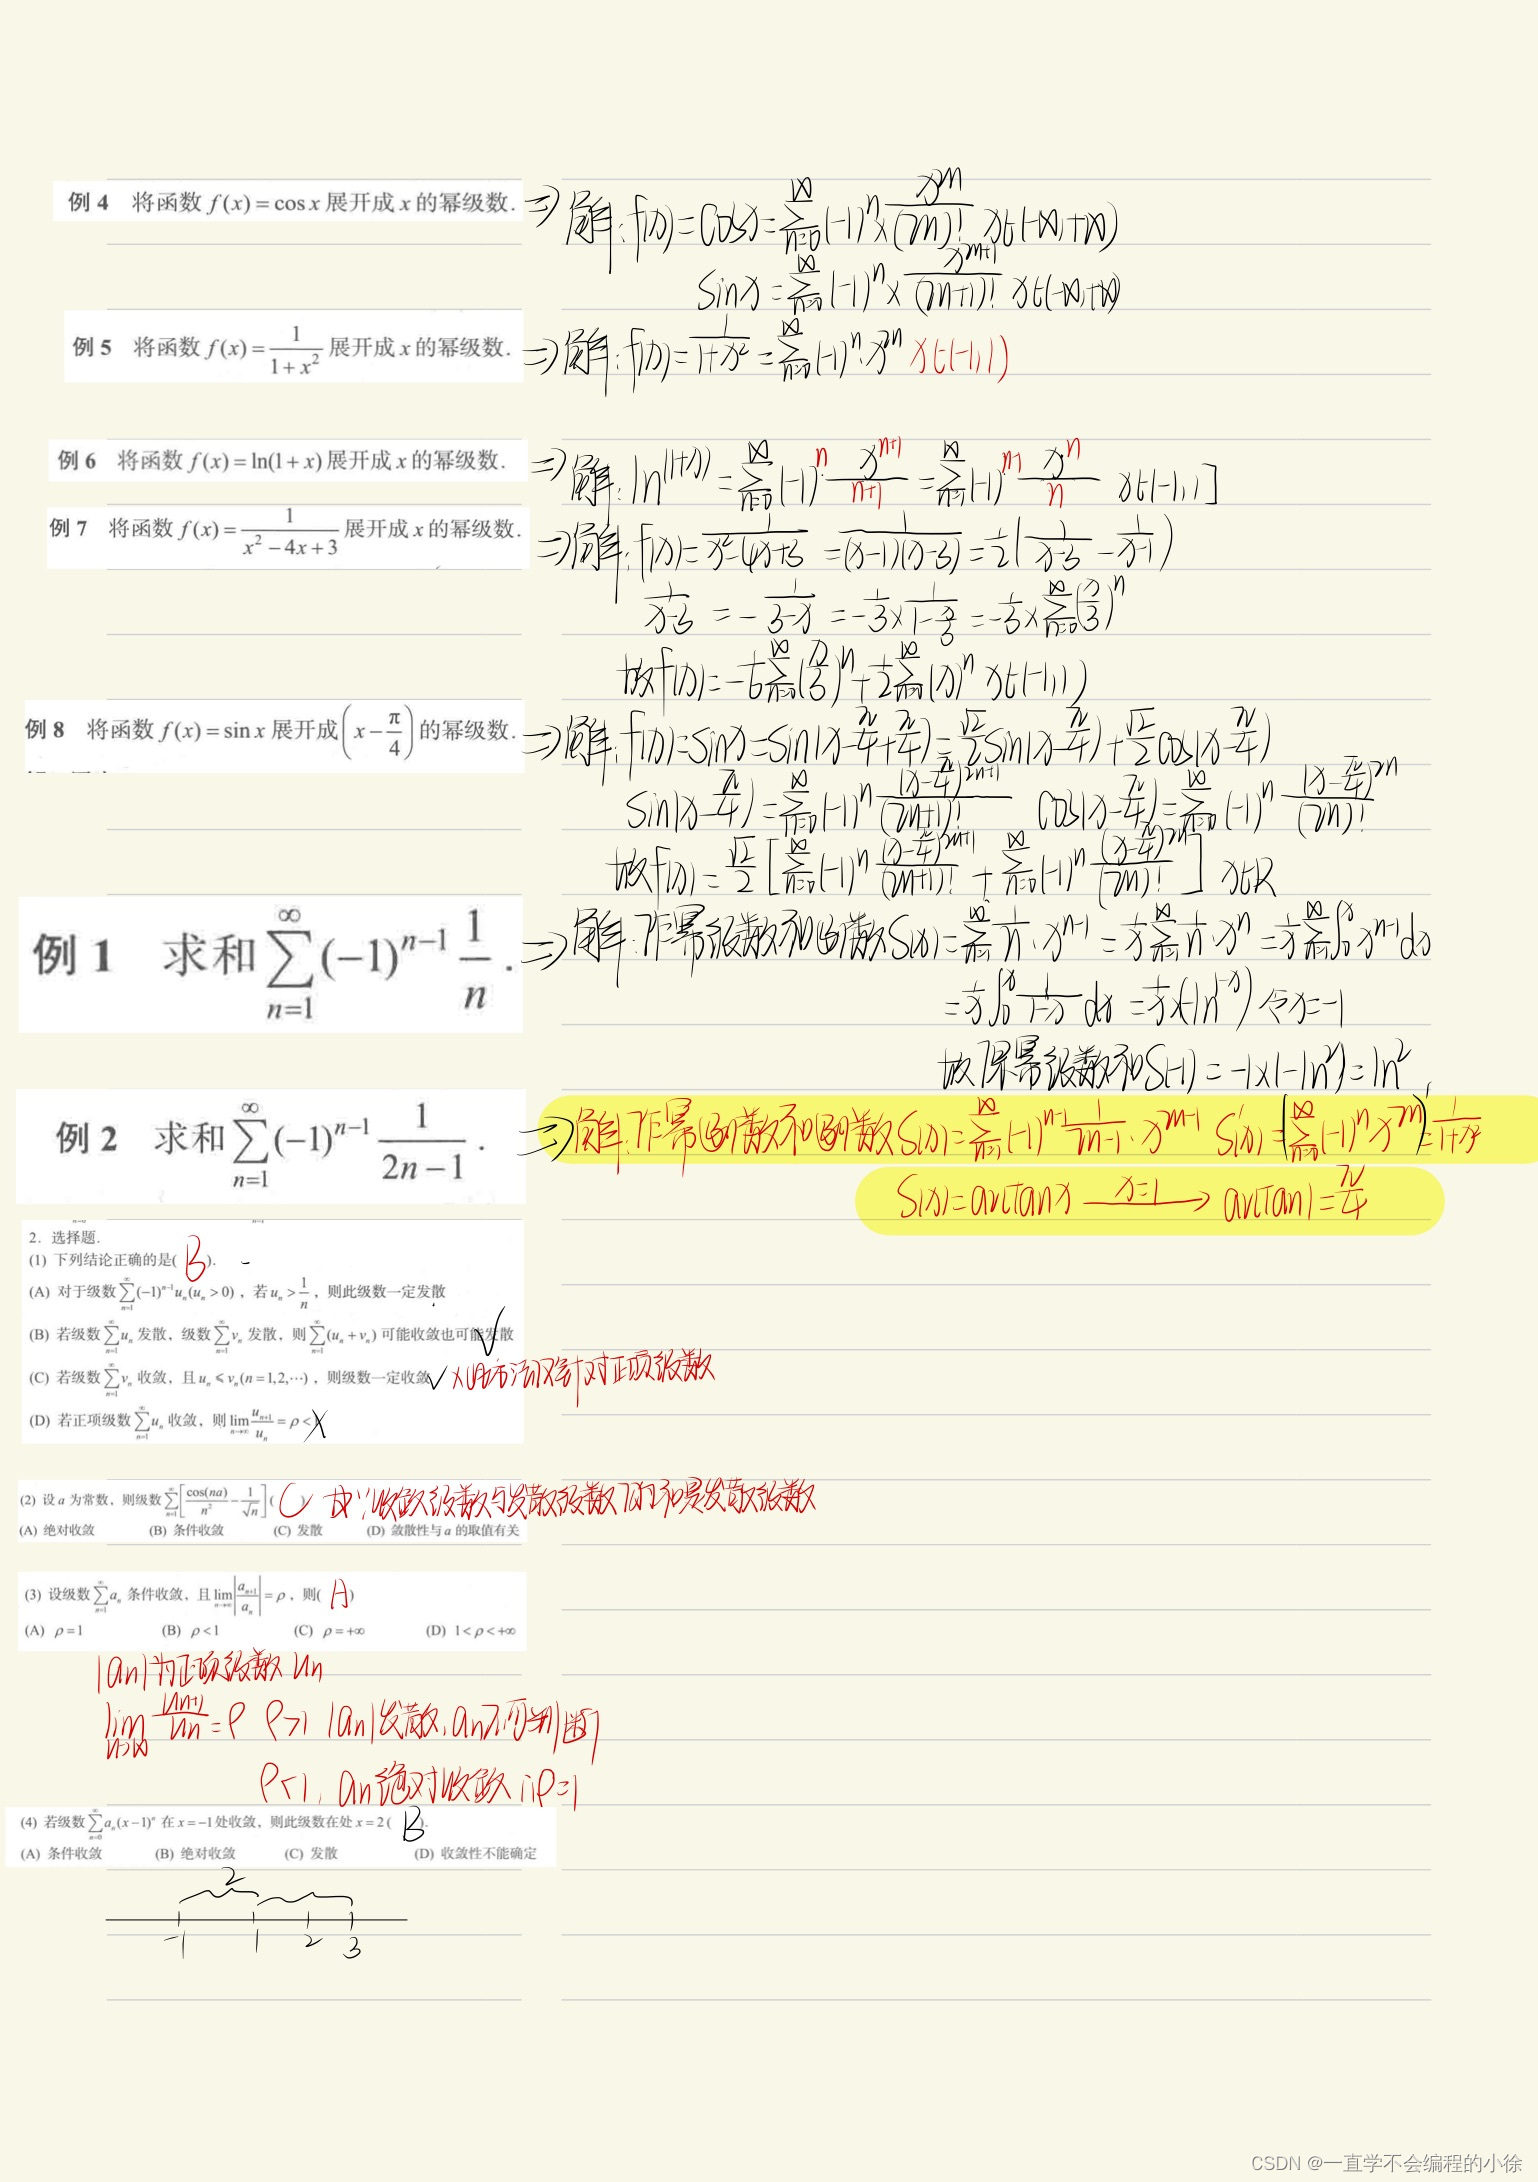 例 4 将函数 f(x) = cos x 展开成 x 的幂级数. ⇒ 解: f(x) = cosx = ∑_{n=0}^{∞} (-1)^n × x^{2n}/(2n)! x∈(-∞,+∞)
sinx = ∑_{n=0}^{∞} (-1)^n × x^{2n+1}/(2n+1)! x∈(-∞,+∞)
例 5 将函数 f(x) = 1/(1+x²) 展开成 x 的幂级数. ⇒ 解: f(x) = 1/(1+x²) = ∑_{n=0}^{∞} (-1)^n · x^{2n} x∈(-1,1)
例 6 将函数 f(x) = ln(1+x) 展开成 x 的幂级数. ⇒ 解: ln(1+x) = ∑_{n=0}^{∞} (-1)^n x^{n+1}/(n+1) = ∑_{n=1}^{∞} (-1)^{n-1} x^n/n x∈(-1,1]
例 7 将函数 f(x) = 1/(x²-4x+3) 展开成 x 的幂级数. ⇒ 解: f(x) = 1/(x²-4x+3) = 1/((x-1)(x-3)) = 1/2(1/(x-3) - 1/(x-1))
1/(x-3) = -1/(3-x) = -1/3 × 1/(1-x/3) = -1/3 × ∑_{n=0}^{∞} (x/3)^n
故f(x) = -1/6 ∑_{n=0}^{∞} (x/3)^n + 1/2 ∑_{n=0}^{∞} (x)^n x∈(-1,1)
例 8 将函数 f(x) = sin x 展开成 (x - π/4) 的幂级数. ⇒ 解: f(x) = sinx = sin(x-π/4+π/4) = √2/2 sin(x-π/4) + √2/2 cos(x-π/4)
sin(x-π/4) = ∑_{n=0}^{∞} (-1)^n (x-π/4)^{2n+1}/(2n+1)! cos(x-π/4) = ∑_{n=0}^{∞} (-1)^n (x-π/4)^{2n}/(2n)!
故f(x) = √2/2 [∑_{n=0}^{∞} (-1)^n (x-π/4)^{2n+1}/(2n+1)! + ∑_{n=0}^{∞} (-1)^n (x-π/4)^{2n}/(2n)!] x∈R
例 1 求和 ∑_{n=1}^{∞} (-1)^{n-1} 1/n. ⇒ 解: 作幂级数和函数S(x) = ∑_{n=1}^{∞} 1/n · x^{n-1} = 1/x ∑_{n=1}^{∞} 1/n · x^n = 1/x ∑_{n=1}^{∞} ∫_0^x x^{n-1} dx
= 1/x ∫_0^x 1/(1-x) dx = 1/x × (-ln(1-x)) 令x=-1
故原幂级数和S(-1) = -1×(-ln2) = ln2
例 2 求和 ∑_{n=1}^{∞} (-1)^{n-1} 1/(2n-1). ⇒ 解: 作幂函数和函数S(x) = ∑_{n=1}^{∞} (-1)^{n-1} 1/(2n-1) · x^{2n-1} S'(x) = (∑_{n=0}^{∞} (-1)^n x^{2n}) = 1/(1+x²)
S(x) = arctanx x=1 → arctan1 = π/4
2. 选择题.
(1) 下列结论正确的是( B ).
(A) 对于级数 ∑_{n=1}^{∞} (-1)^{n-1} u_n (u_n > 0), 若 u_n > 1/n, 则此级数一定发散
(B) 若级数 ∑_{n=1}^{∞} u_n 发散, 级数 ∑_{n=1}^{∞} v_n 发散, 则 ∑_{n=1}^{∞} (u_n + v_n) 可能收敛也可能发散 √
(C) 若级数 ∑_{n=1}^{∞} v_n 收敛, 且 u_n ≤ v_n (n = 1,2,⋯), 则级数一定收敛 √ × 针对正项级数
(D) 若正项级数 ∑_{n=1}^{∞} u_n 收敛, 则 lim_{n→∞} u_{n+1}/u_n = ρ < ×
(2) 设 a 为常数, 则级数 ∑_{n=1}^{∞} [cos(na)/n² - 1/√n] ( C 收敛级数与发散级数的和是发散级数
(A) 绝对收敛 (B) 条件收敛 (C) 发散 (D) 敛散性与 a 的取值有关
(3) 设级数 ∑_{n=1}^{∞} a_n 条件收敛, 且 lim_{n→∞} |a_{n+1}/a_n| = ρ, 则( A )
(A) ρ = 1 (B) ρ < 1 (C) ρ = +∞ (D) 1 < ρ < +∞
|an|为正项级数 un
lim_{n→∞} u_{n+1}/u_n = ρ ρ>1 |an|发散, an不可判断
ρ<1, an绝对收敛 ∴ρ=1
(4) 若级数 ∑_{n=0}^{∞} a_n(x-1)^n 在 x = -1 处收敛, 则此级数在处 x = 2 ( B ).
(A) 条件收敛 (B) 绝对收敛 (C) 发散 (D) 收敛性不能确定
2
-1 1 2 3
CSDN @一直学不会编程的小徐